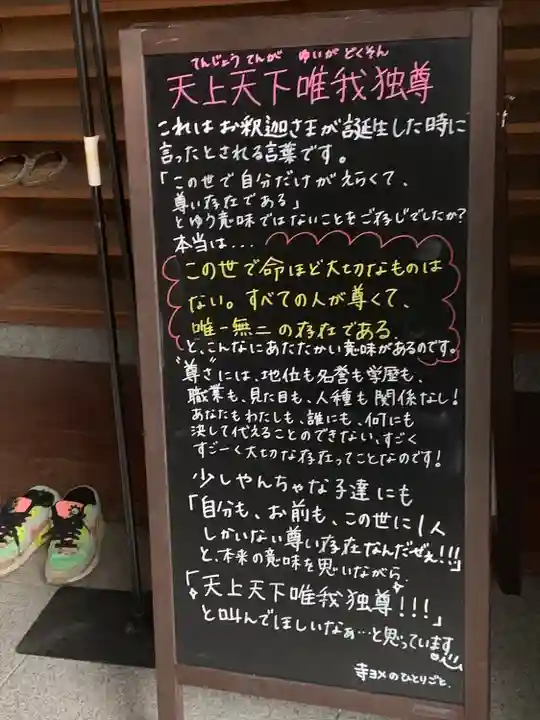 てんじょう てんが ゆいが どくそん
天上天下唯我独尊
これはお釈迦さまが誕生した時に
言ったとされる言葉です。
「この世で自分だけがえらくて、
尊い存在である」
とゆう意味ではないことをご存じでしたか?
本当は...
この世で命ほど大切なものは
ない。すべての人が尊くて、
唯一無二の存在である
と、こんなにあたたかい意味があるのです。
"尊さ"には、地位も名誉も学歴も、
職業も、見た目も、人種も関係なし!
あなたもわたしも、誰にも、何にも
決して代えることのできない、すごく
すごーく大切な存在ってことなのです!
少しやんちゃな子達にも
「自分も、お前も、この世に1人
しかいない尊い存在なんだぜぇ!!!」
と、本来の意味を思いながら、
「天上天下唯我独尊!!!」
と叫んでほしいなぁ…と思っています
寺ヨメのひとりごと.